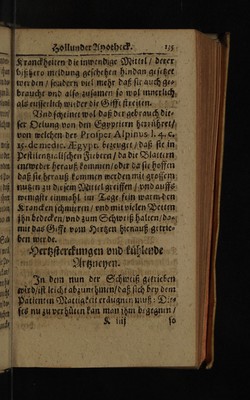 Hollunder Apotheck. 135
Kranckheiten die inwendige Mittel / derer
bißhero meldung geschehen hindan gesetzet
werden / sondern viel mehr daß sie auch ge-
braucht und also zusamen so wol innerlich
als eusserlich wieder die Gifft streiten.
Und scheinet wol daß der gebrauch die-
ser Oelung von den Egyptern herrühret /
von welchen der Prosper Alpinus l. 4. c.
15. de medic. Ægypt. bezeuget / daß sie in
Pestilentzialischen Fiebern / da die Blattern
entweder herauß kommen / oder da sie hoffen
daß sie herauß kommen werden mit grossem
nutzen zu diesem Mittel greiffen / und auffs
wenigste einmahl am Tage fein warm den
Krancken schmieren / und mit vielen Betten
ihn bedecken / und zum Schweiß halten / da-
mit das Gifft vom Hertzen hienauß getrie-
ben werde.
Hertzsterckungen und kühlende
Artzneyen.
In dem nun der Schweiß getrieben
wird / ist leicht abzunehmen / daß sich bey dem
Patienten Mattigkeit eräugnen muß: Die-
ses nu zu verhüten kan man ihm begegnen /
K iiij so